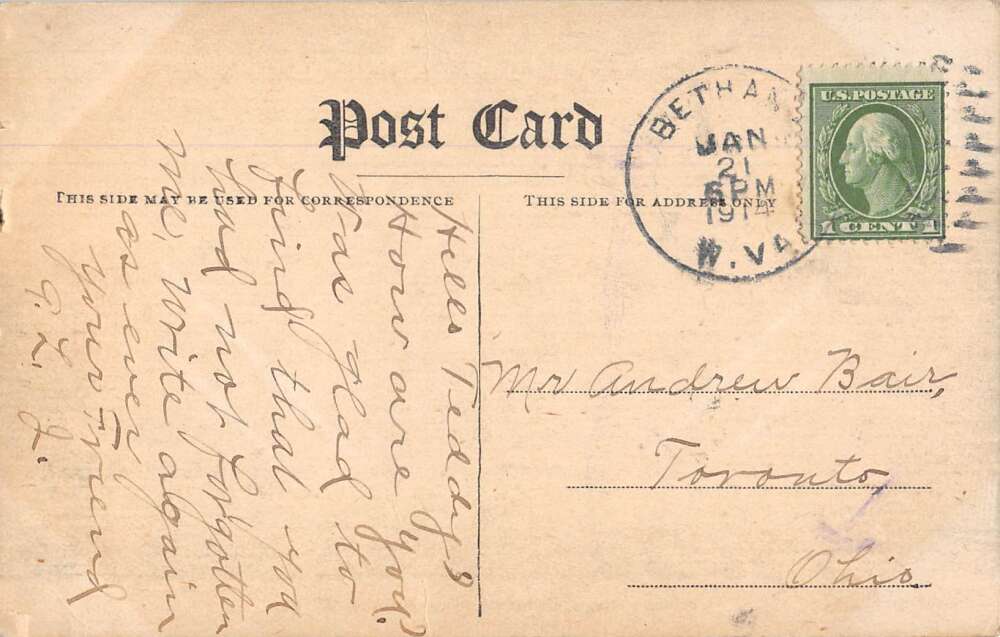 Post Card
THIS SIDE MAY BE USED FOR CORRESPONDENCE
THIS SIDE FOR ADDRESS ONLY
BETHAN
JAN
21
PM
1914
W. VA
U.S. POSTAGE
1 CENT 1
Hello
How are you?
Was glad to
find that you
had not forgotten
me, Write again
as ever
Your Friend
L.
Mr Andrew Bair,
Toronto
Ohio.